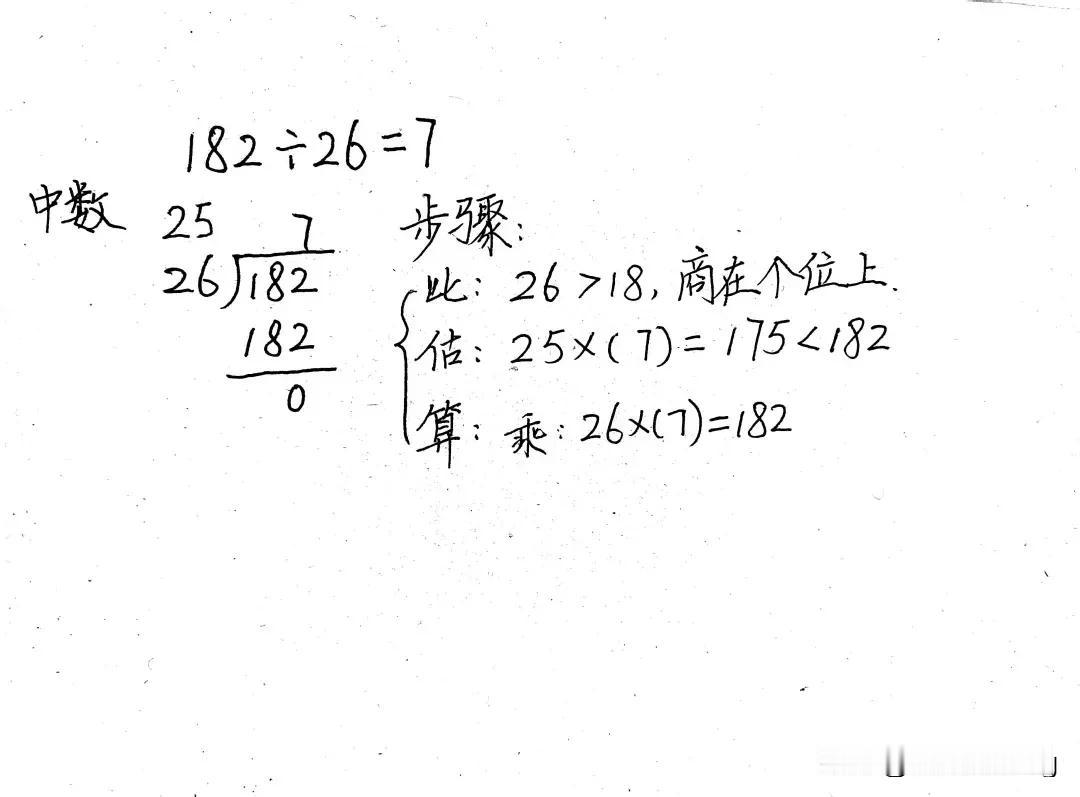 182÷26=7
中数 25 7
26 182
182
0
步骤:
比: 26>18, 商在个位上.
估: 25×(7)=175<182
算: 乘: 26×(7)=182